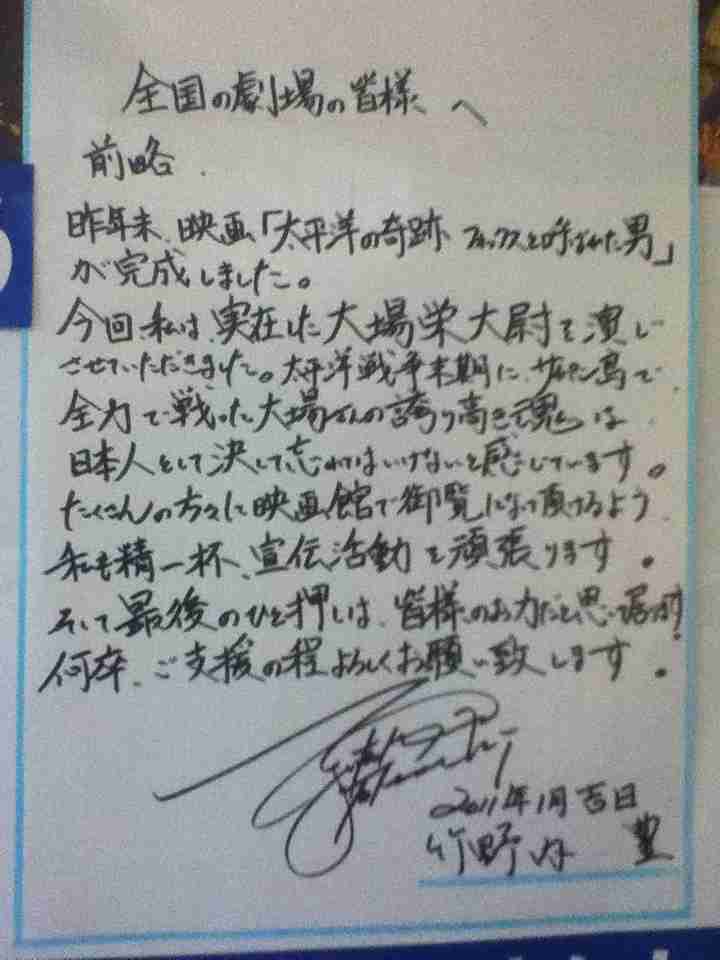 全国の劇場の皆様へ
前略
昨年末、映画「太平洋の奇跡 フォックスと呼ばれた男」
が完成しました。
今回私は、実在した大場栄大尉を演じ
させていただきました。太平洋戦争末期に、サイパン島で、
全力で戦った大場さんの誇り高き魂は
日本人として決して忘れてはいけないと感じています。
たくさんの方々に映画館で御覧になって頂けるよう
私も精一杯、宣伝活動を頑張ります。
そして最後のひと押しは、皆様のお力だと思って居ります
何卒、ご支援の程よろしくお願い致します。
2011年1月吉日
竹野内 豊